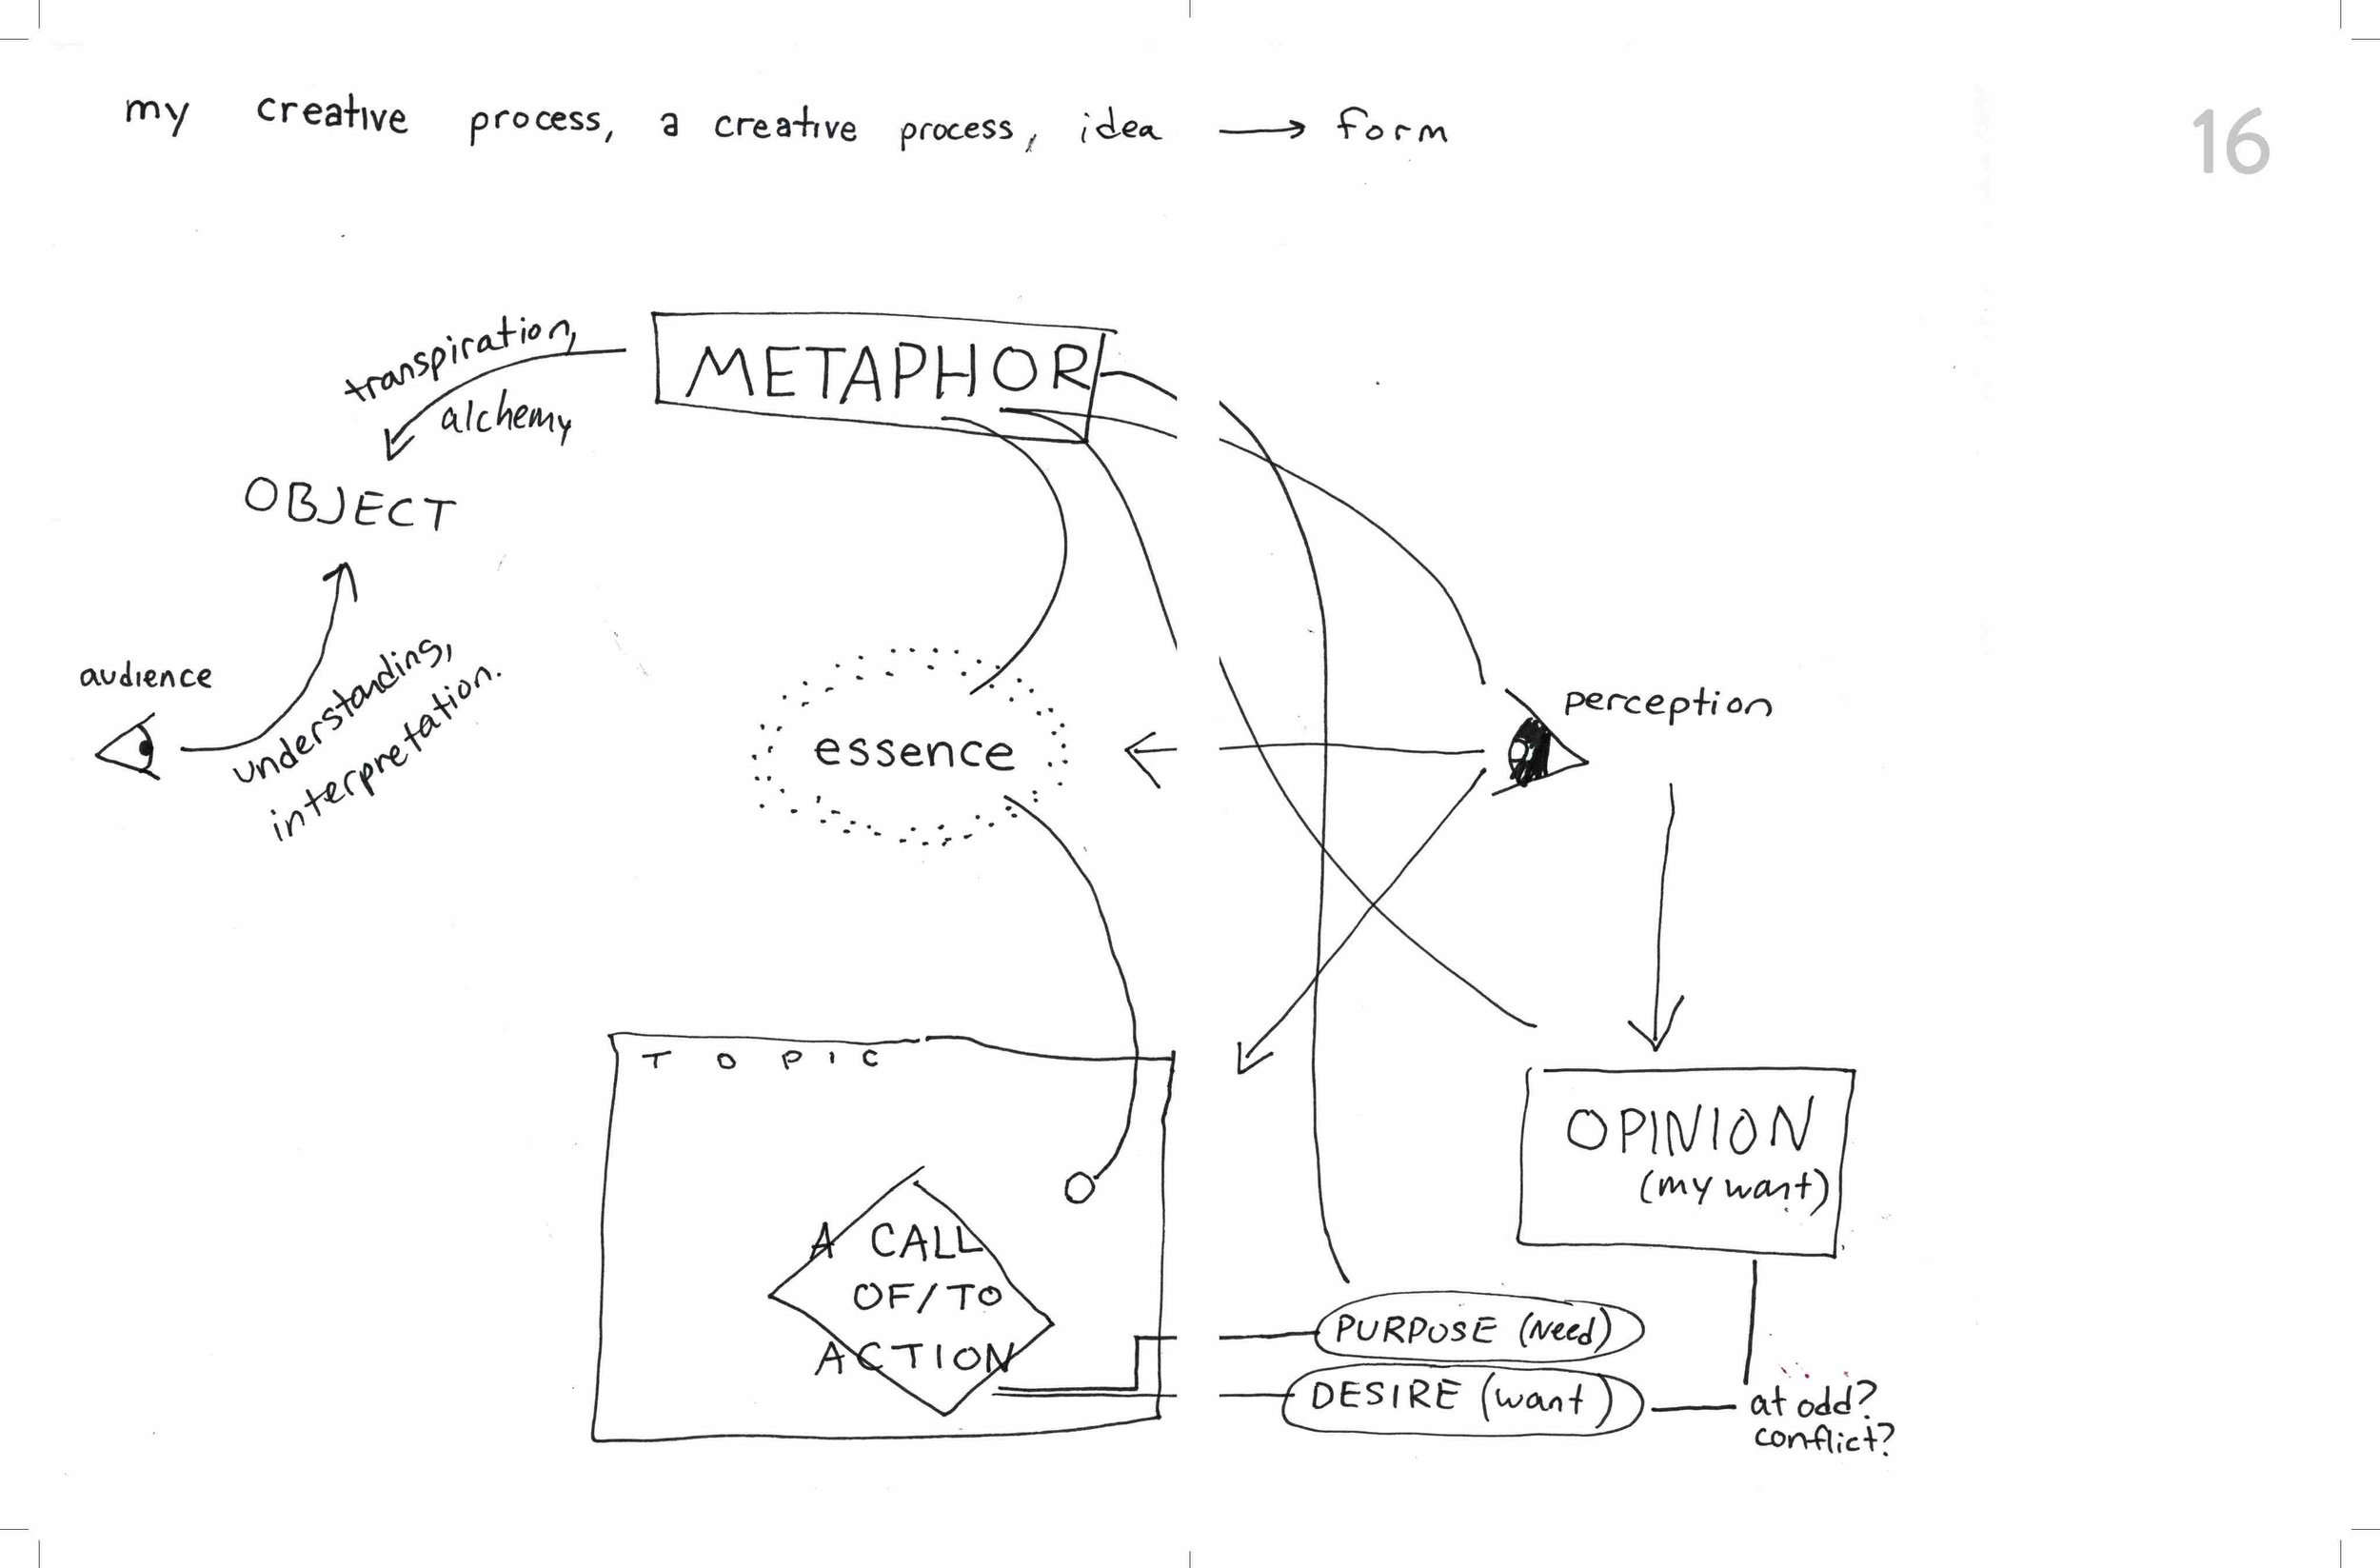 my creative process, a creative process, idea → form
16
transpiration,
alchemy
METAPHOR
OBJECT
audience
understanding,
interpretation.
essence
perception
TOPIC
A CALL
OF/TO
ACTION
OPINION
(my want)
PURPOSE (Need)
DESIRE (want)
at odd?
conflict?